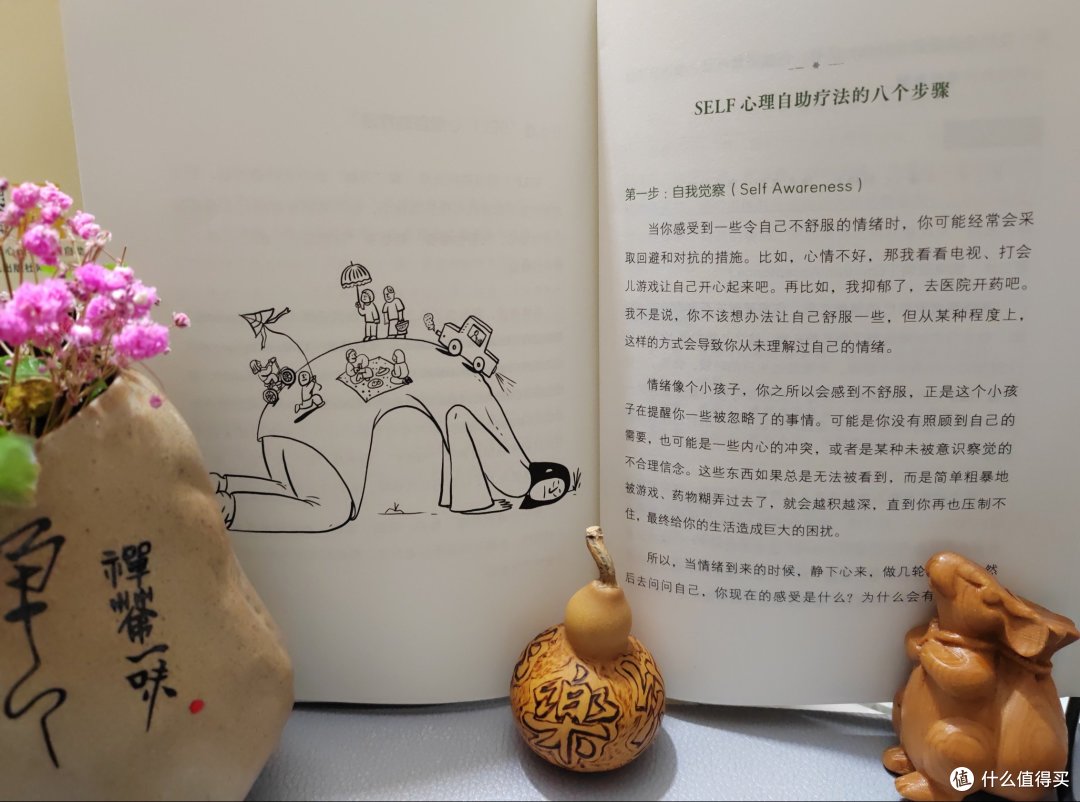 SELF 心理自助疗法的八个步骤
第一步：自我觉察（Self Awareness）
当你感受到一些令自己不舒服的情绪时，你可能经常会采
取回避和对抗的措施。比如，心情不好，那我看看电视、打会
儿游戏让自己开心起来吧。再比如，我抑郁了，去医院开药吧。
我不是说，你不该想办法让自己舒服一些，但从某种程度上，
这样的方式会导致你从未理解过自己的情绪。
情绪像个小孩子，你之所以会感到不舒服，正是这个小孩
子在提醒你一些被忽略了的事情。可能是你没有照顾到自己的
需要，也可能是一些内心的冲突，或者是某种未被意识察觉的
不合理信念。这些东西如果总是无法被看到，而是简单粗暴地
被游戏、药物糊弄过去了，就会越积越深，直到你再也压制不
住，最终给你的生活造成巨大的困扰。
所以，当情绪到来的时候，静下心来，做几轮
然
后去问问自己，你现在的感受是什么？为什么会有
禪茶一味
樂
值 什么值得买